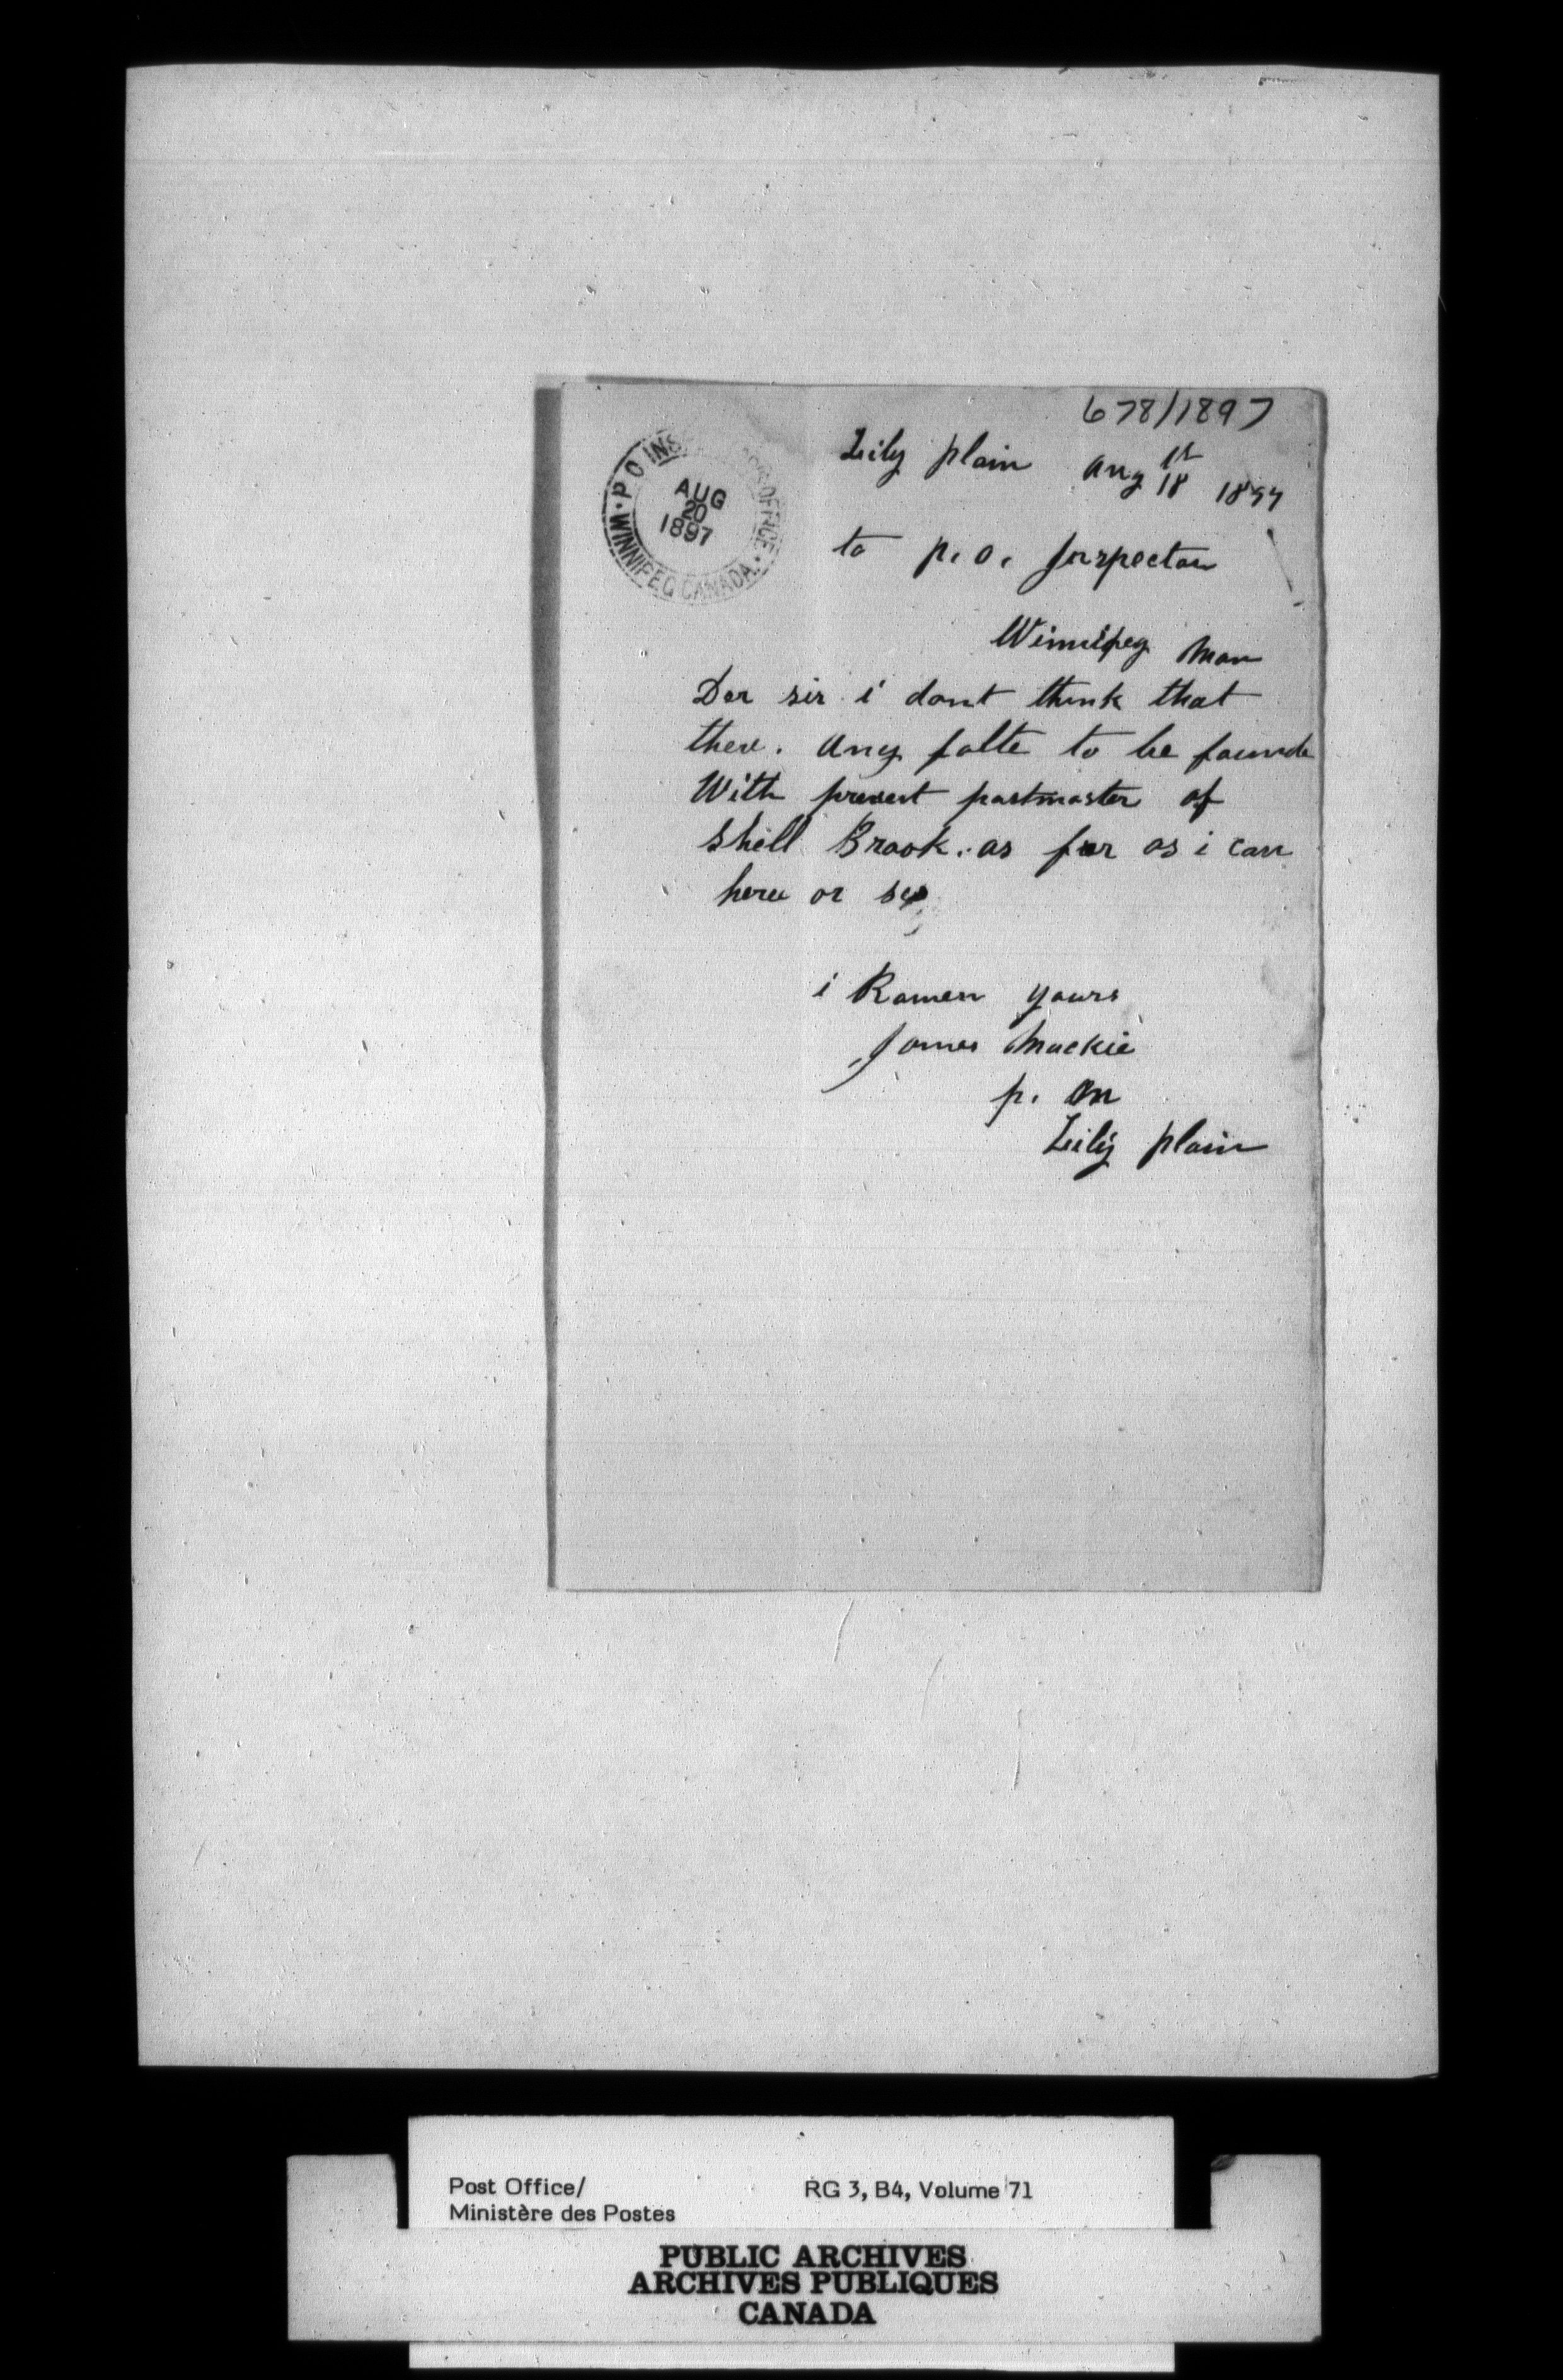 678/1897
P O INS OFFICE. WINNIPEG CANADA.
AUG
20
1897
Lily plain aug 18 1st 1897
to p. o. Inspector
Winnipeg Man
Der sir i dont think that
there. any falte to be founde
With present postmaster of
Shell Brook. as far as i can
here or se
i Ramen yours
James Mackie
p. M
Lily plain
Post Office/ RG 3, B4, Volume 71
Ministère des Postes
PUBLIC ARCHIVES
ARCHIVES PUBLIQUES
CANADA